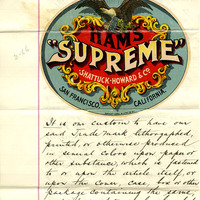 HAMS
"SUPREME"
SHATTUCK-HOWARD & CO
SAN FRANCISCO, CALIFORNIA.
It is our custom to have our
said Trade Mark lithographed,
printed, or otherwise produced
in several colors upon paper or
other substance, which is fastened
to or upon the article itself, or
upon the cover, case, box or other
package containing the same,